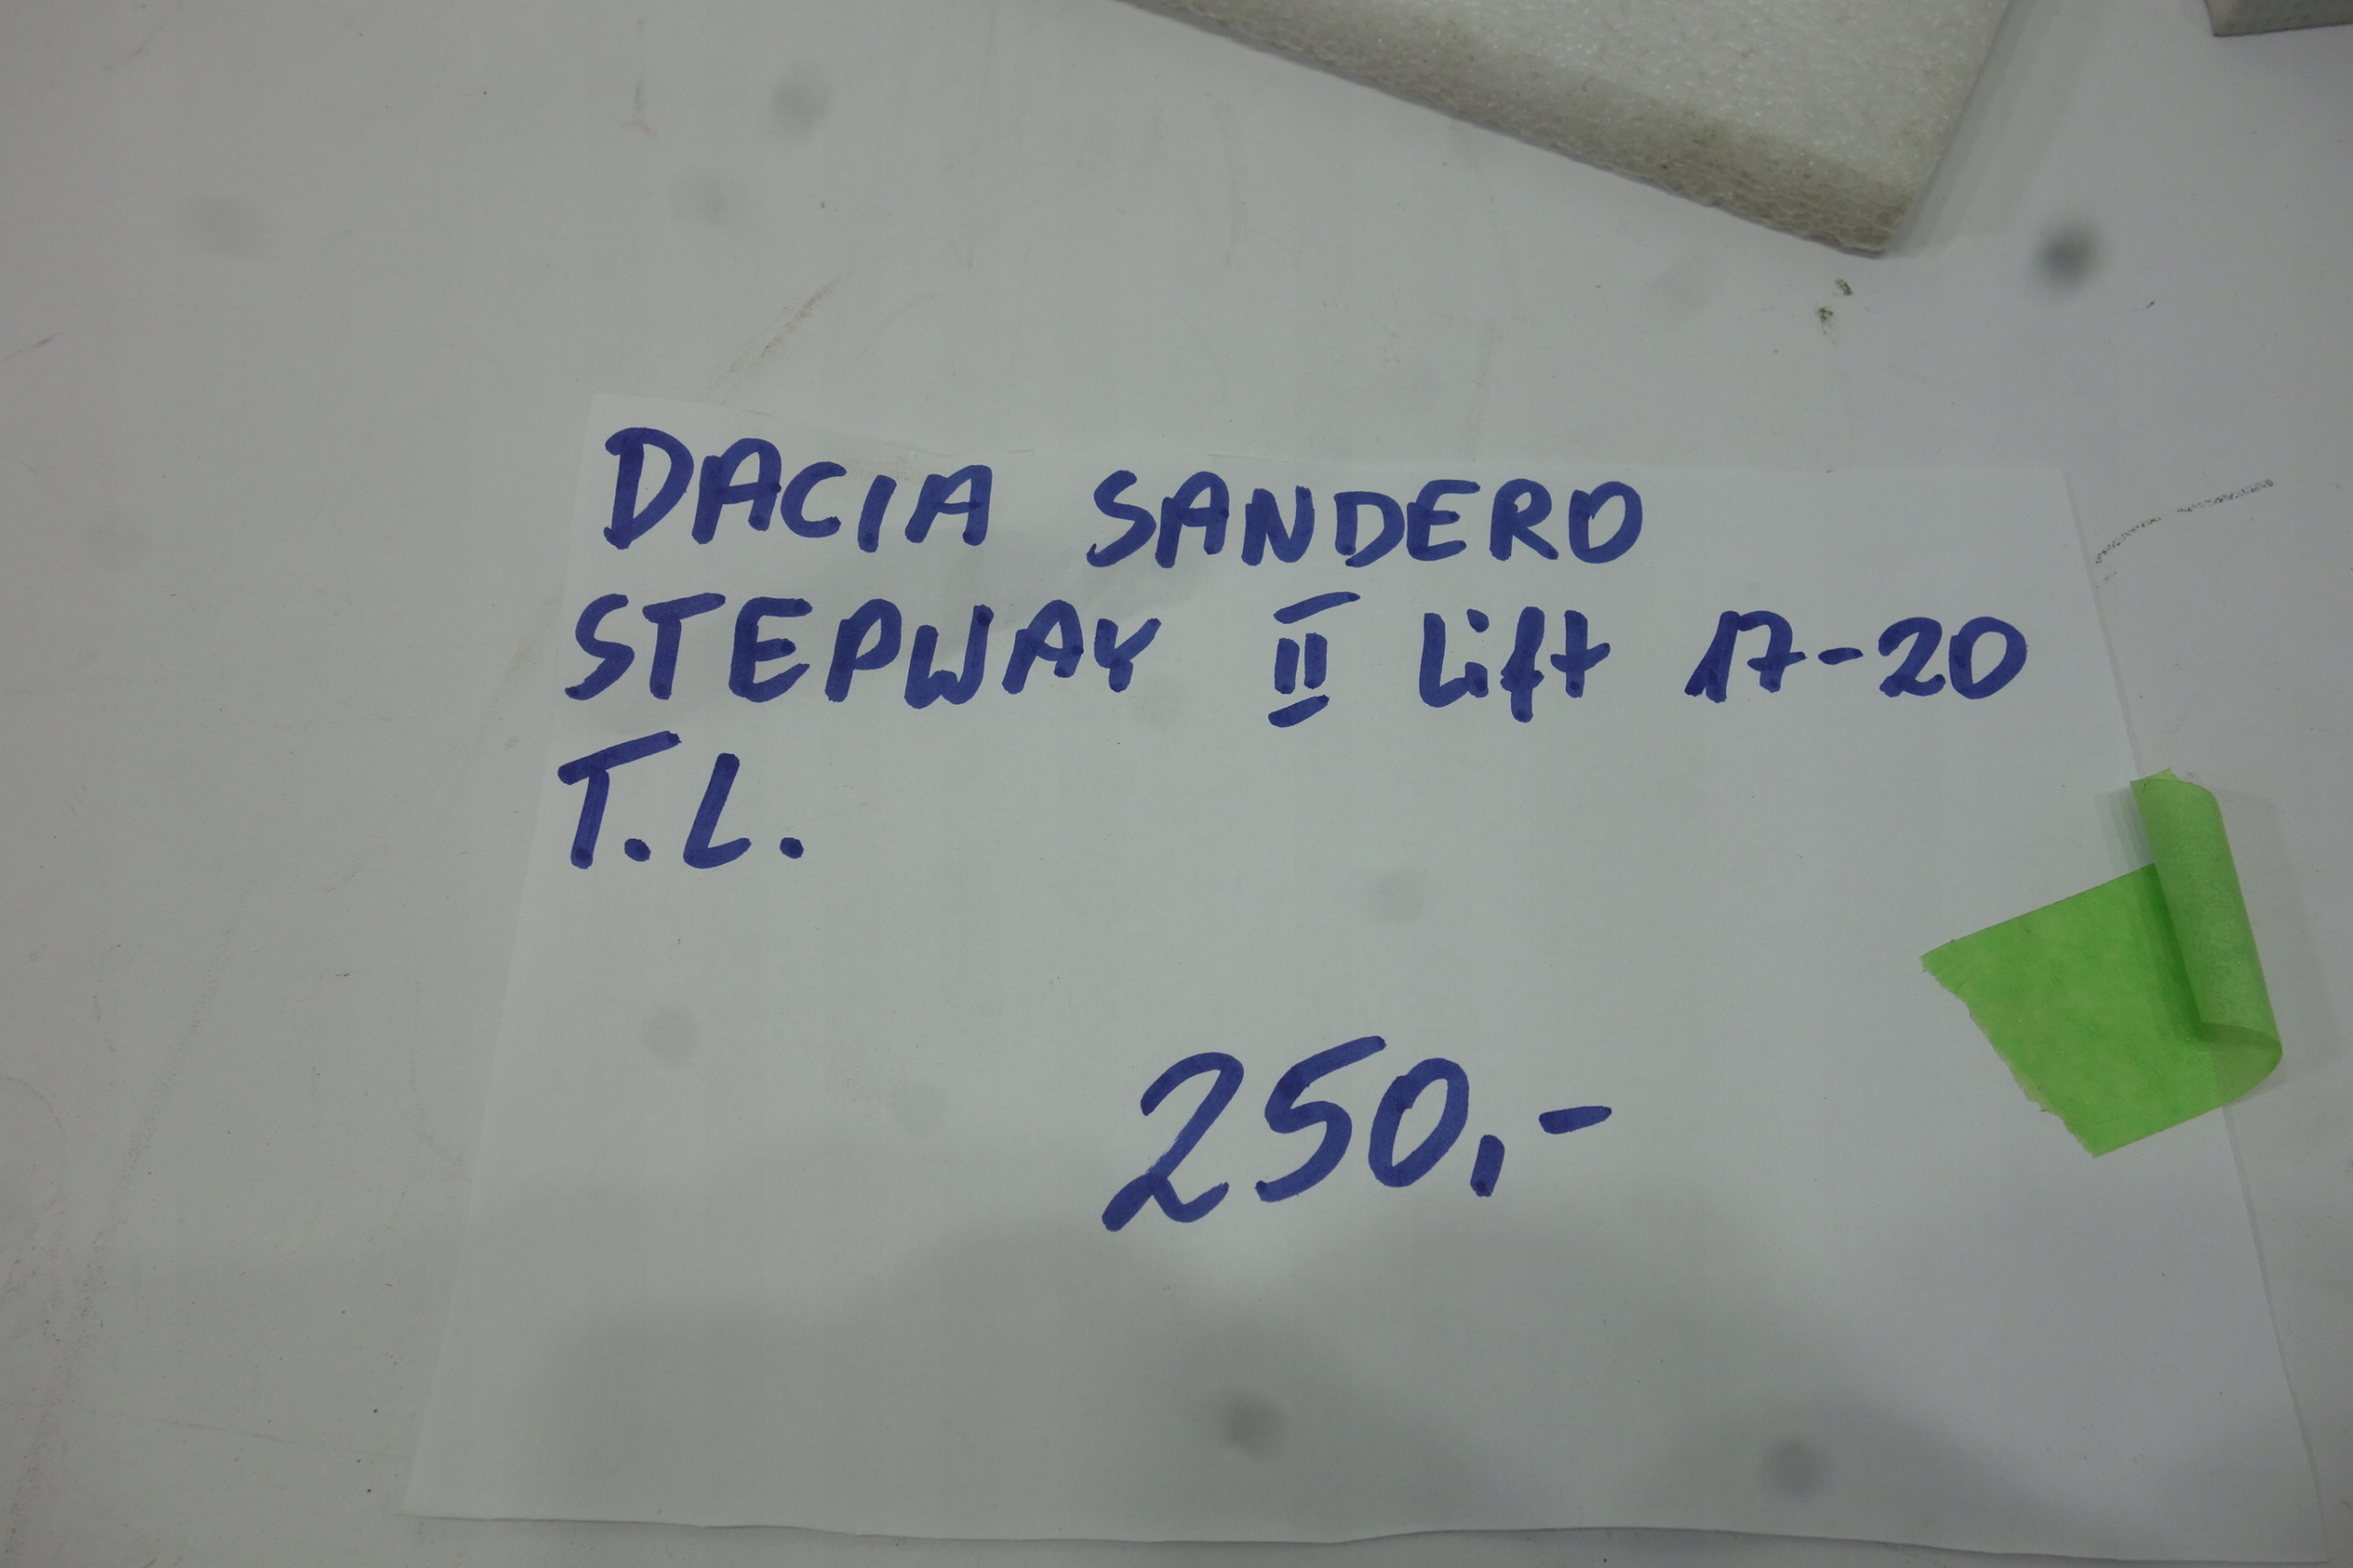 DACIA SANDERO
STEPWAY II Lift 17-20
T.L.
250,-